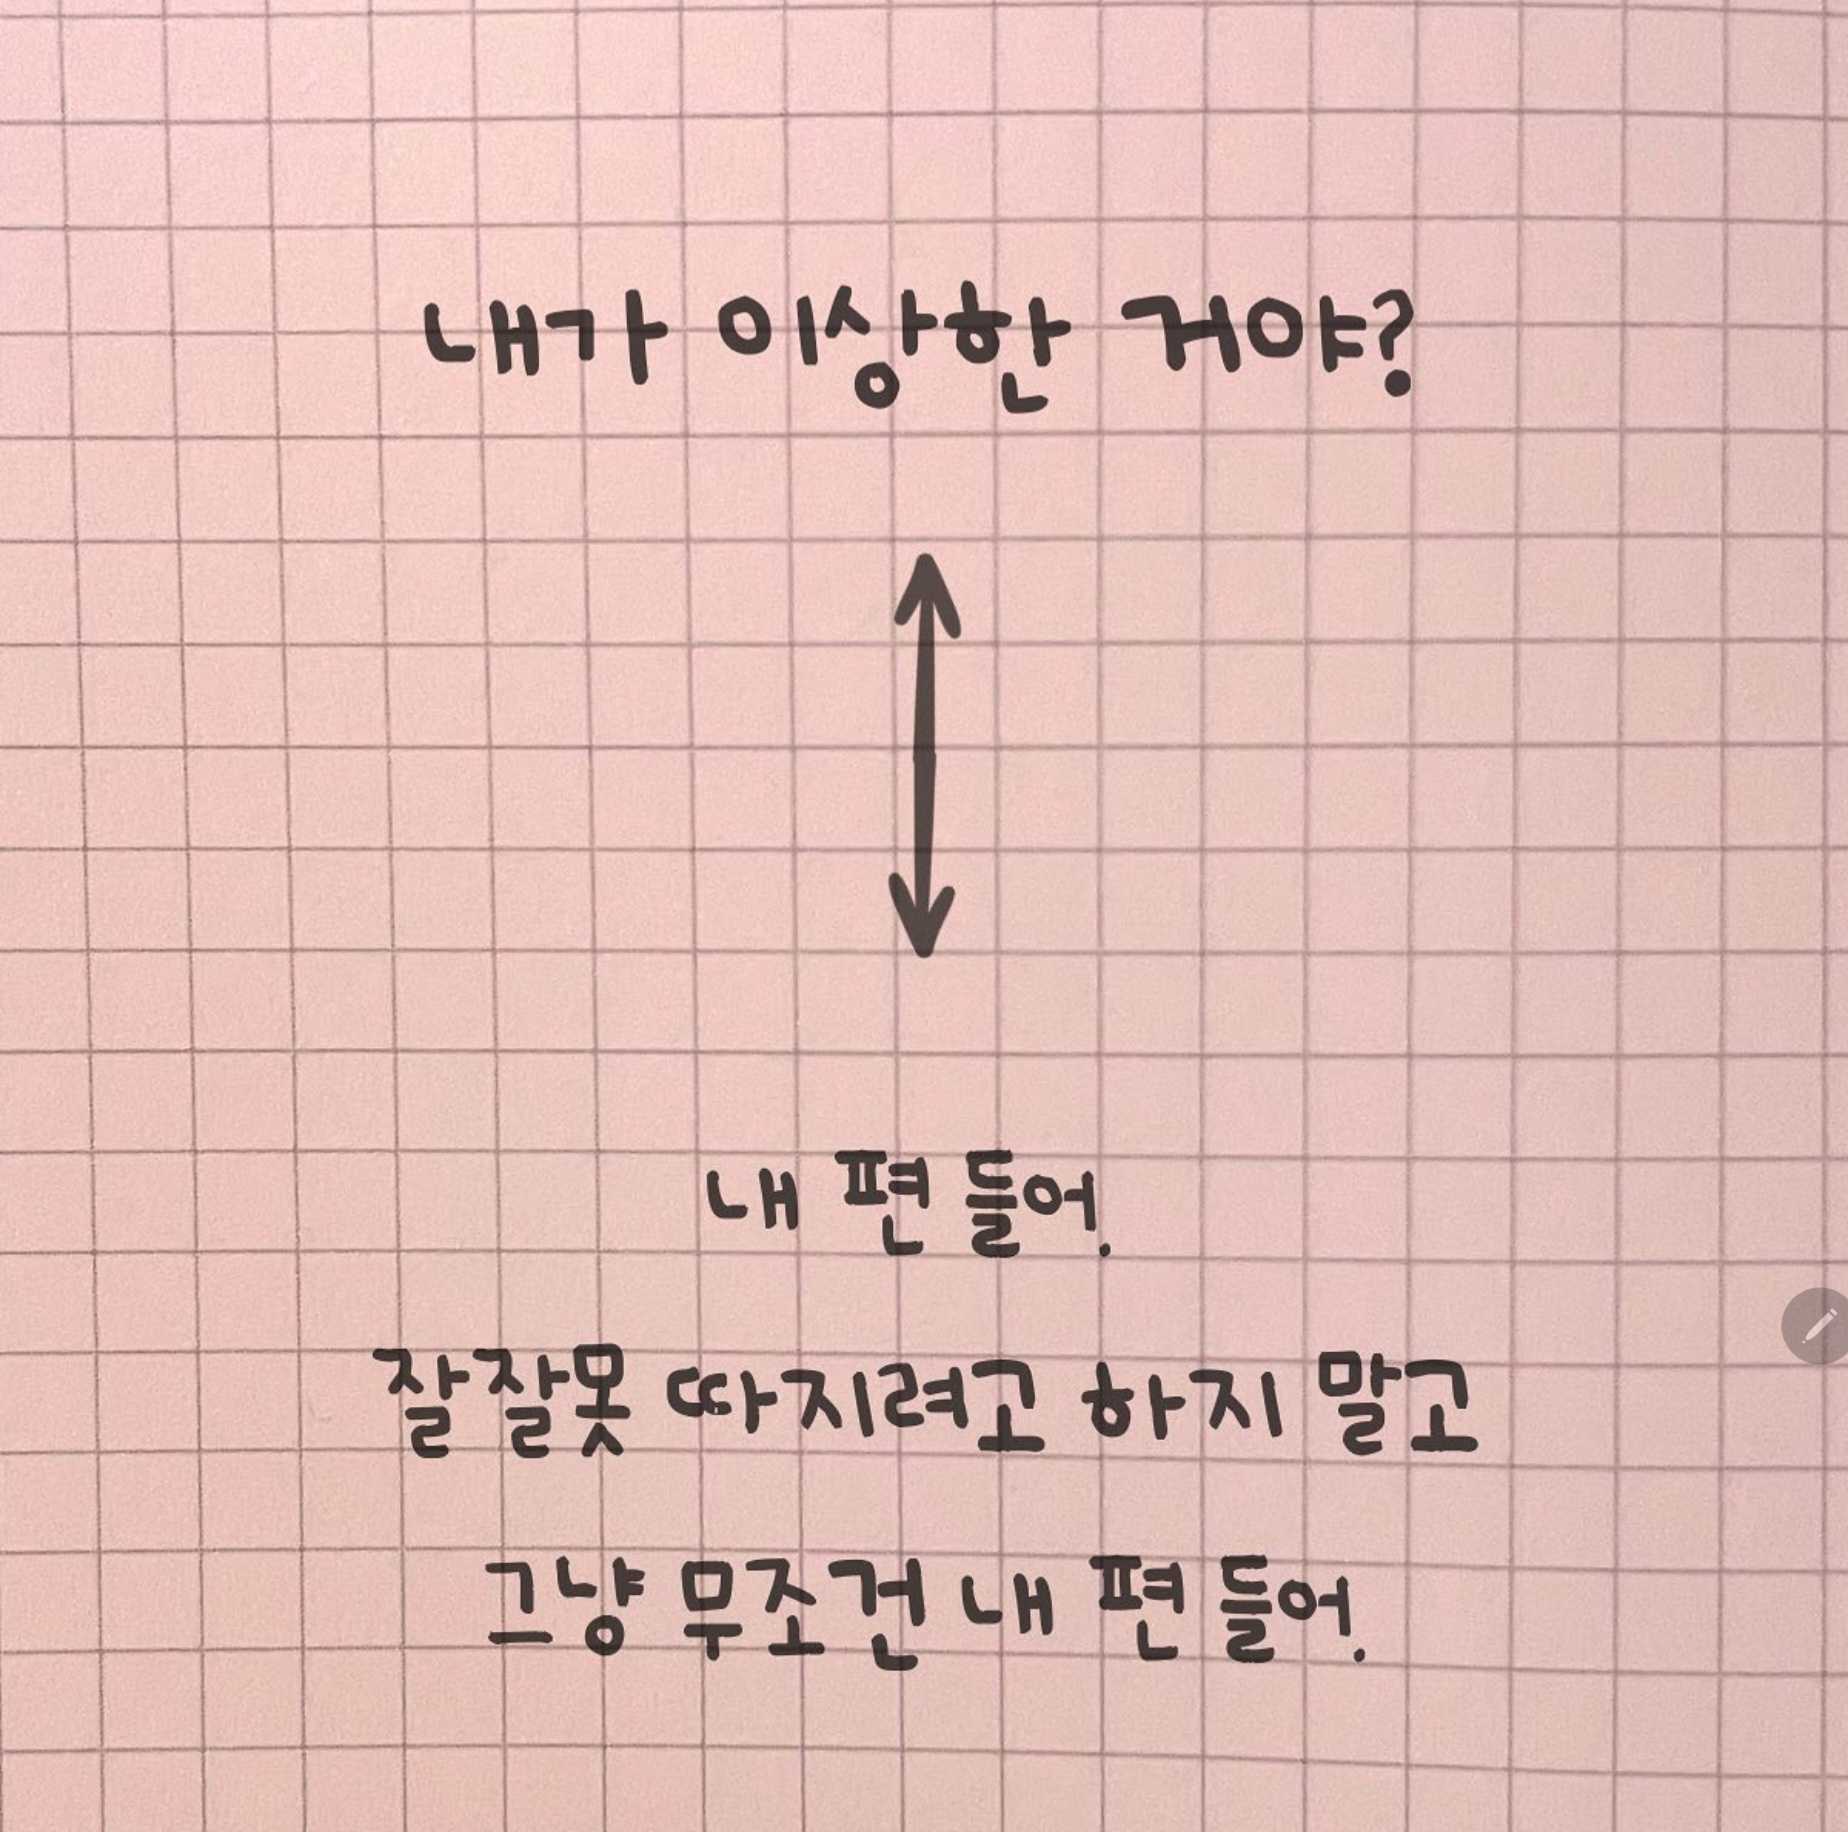 내가 이상한 거야?
내 편 들어.
잘잘못 따지려고 하지 말고
그냥 무조건 내 편 들어.